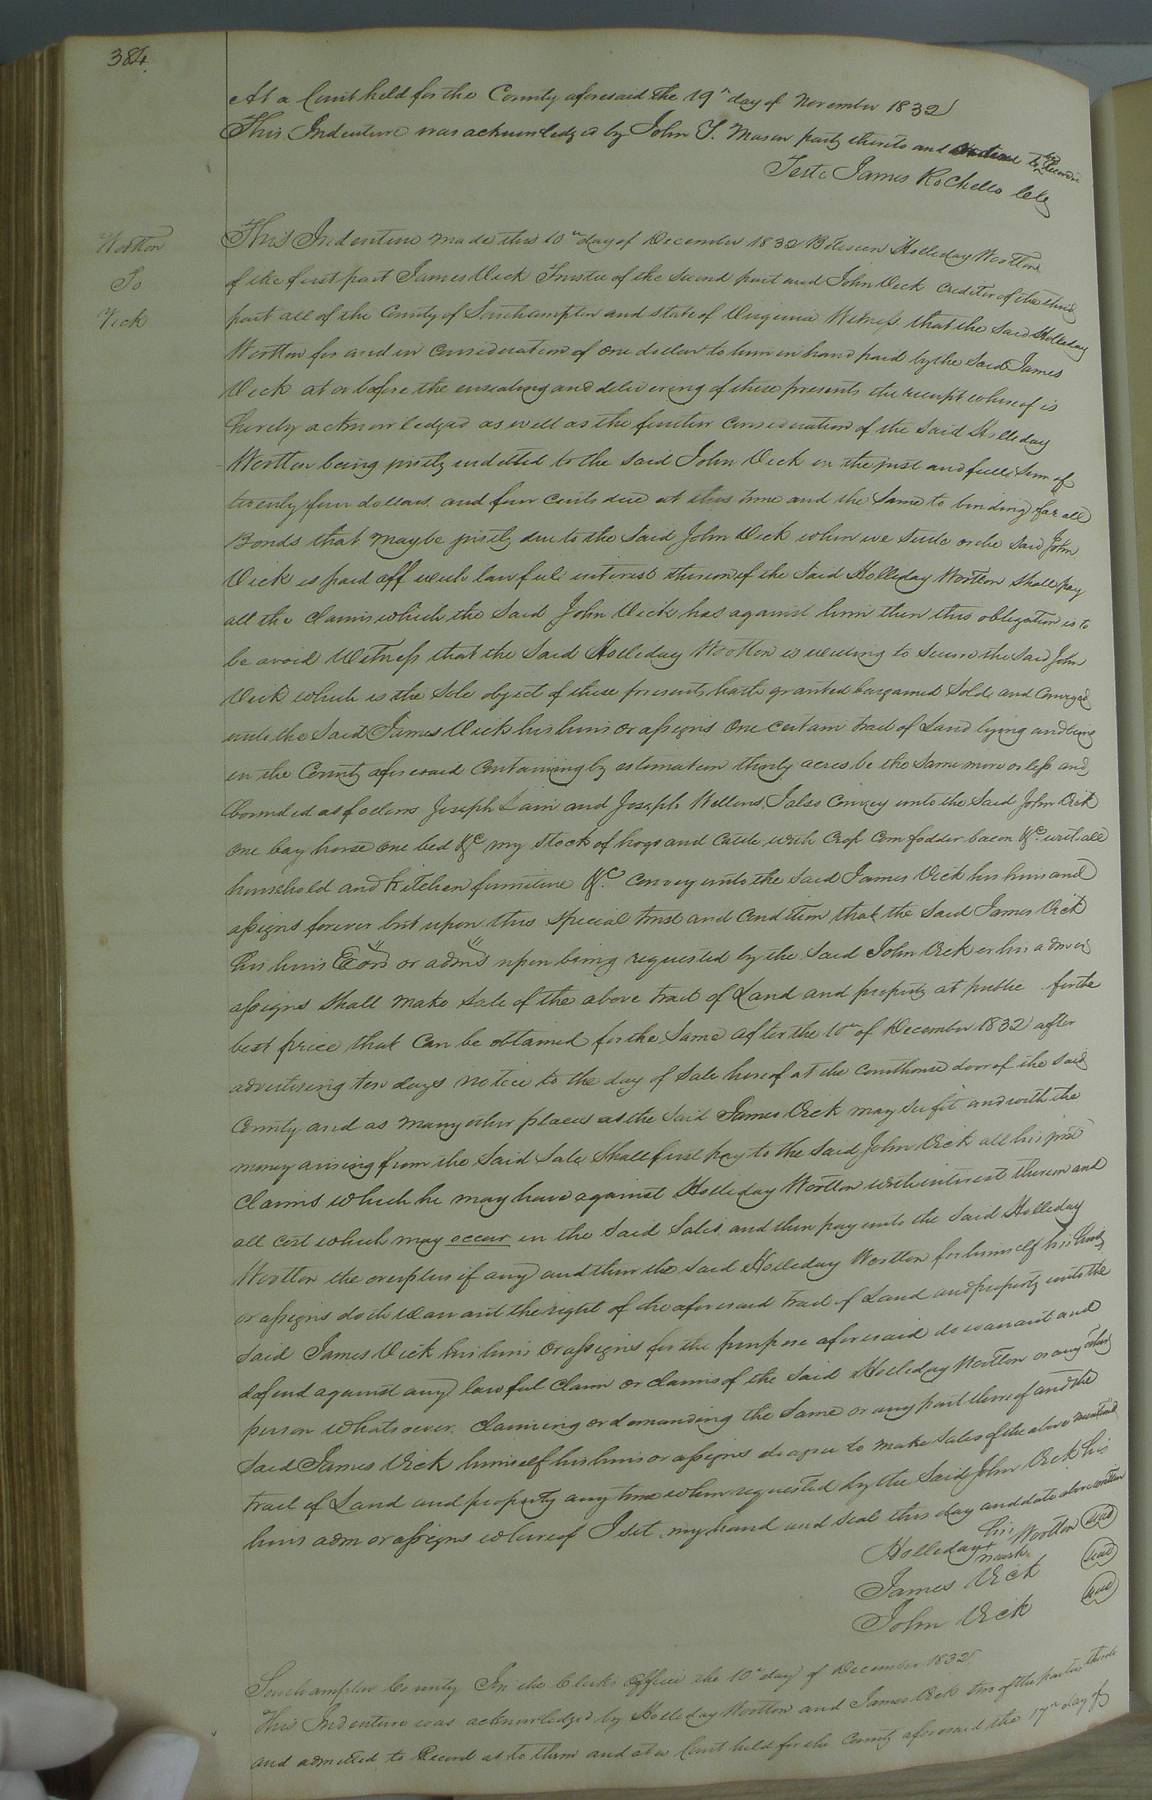 384.
At a Court held for the County aforesaid the 19th day of November 1832
This Indenture was acknowledged by John T. Mason party thereto and ordered to be Recorded
Teste James Rochelle Clk
Wootton
To
Vick
This Indenture made this 10th day of December 1832 Between Holleday Wootton
of the first part James Vick Trustee of the second part and John Vick Creditor of the third
part all of the County of Southampton and state of Virginia Witness that the said Holleday
Wootton for and in consideration of one dollar to him in hand paid by the said James
Vick at or before the ensealing and delivering of these presents the receipt whereof is
hereby acknowledged as well as the further consideration of the said Holleday
Wootton being justly indetted to the said John Vick in the just and full sum of
twenty four dollars and four cents due at this time and the same to binding for all
Bonds that may be justly due to the said John Vick when we settle or the said John
Vick is paid off with lawful interest thereon if the said Holleday Wootton shall pay
all the claims which the said John Vick has against him then this obligation is to
be avoid Witness that the said Holleday Wootton is willing to secure the said John
Vick which is the sole object of these presents hath granted bargained sold and conveyed
unto the said James Vick his heirs or assigns one certain tract of Land lying and being
in the County aforesaid containing by estimation thirty acres be the same more or less and
bounded as follows Joseph Lain and Joseph Wellons I also convey unto the said John Vick
one bay horse one bed &c my stock of hogs and cattle with crop corn fodder bacon &c with all
household and kitchen furniture &c convey unto the said James Vick his heirs and
assigns forever but upon this special trust and condition that the said James Vick
his heirs Exors or admrs upon being requested by the said John Vick or his admr or
assigns shall make sale of the above tract of Land and property at public for the
best price that can be obtained for the same after the 10th of December 1832 after
advertising ten days notice to the day of sale hereof at the courthouse door of the said
County and as many other places as the said James Vick may see fit and with the
money arising from the said sale shall first pay to the said John Vick all his just
claims which he may have against Holleday Wootton with interest thereon and
all cost which may occur in the said sales and then pay unto the said Holleday
Wootton the overplus if any and then the said Holleday Wootton for himself his heirs
or assigns do the warrant the right of the aforesaid tract of Land and property unto the
said James Vick his heirs or assigns for the purpose aforesaid do warrant and
defend against any lawful claim or claims of the said Holleday Wootton or any other
person whatsoever claiming or demanding the same or any part thereof and the
said James Vick himself his heirs or assigns do agree to make sales of the above mentioned
tract of Land and property any time when requested by the said John Vick his
heirs adm or assigns whereof I set my hand and seal this day and date above written
Holleday his + mark Wootton seal
James Vick seal
John Vick seal
Southampton County In the Clerks Office the 10th day of December 1832
This Indenture was acknowledged by Holleday Wootton and James Vick two of the parties thereto
and admitted to Record as to them and at a Court held for the County aforesaid the 17th day of